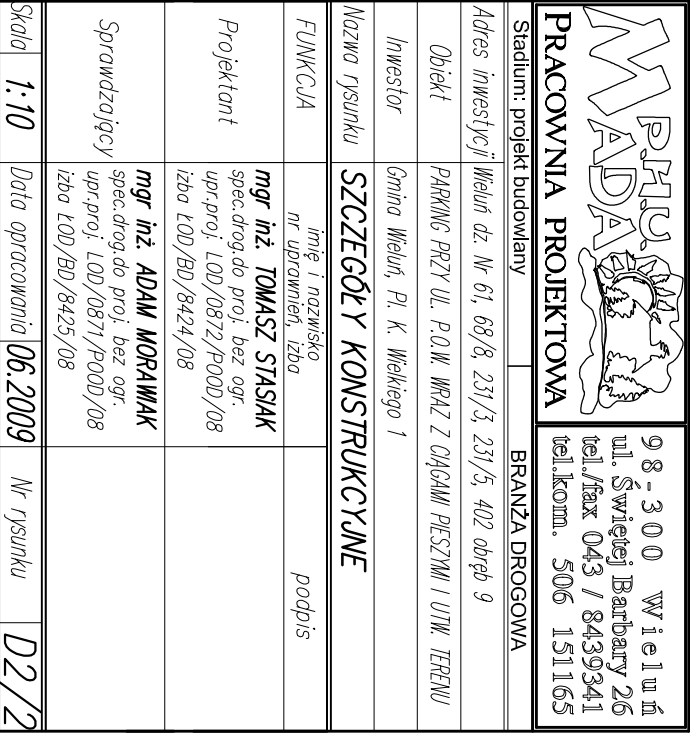 P.H.U.
MADA
PRACOWNIA PROJEKTOWA
98-300 Wieluń
ul. Świętej Barbary 26
tel./fax 043 / 8439341
tel.kom. 506 151165
Stadium: projekt budowlany
BRANŻA DROGOWA
Adres inwestycji Wieluń dz. Nr 61, 68/8, 231/3, 231/5, 402 obręb 9
Obiekt PARKING PRZY UL. P.O.W. WRAZ Z CIĄGAMI PIESZYMI I UTW. TERENU
Inwestor Gmina Wieluń, Pl. K. Wielkiego 1
Nazwa rysunku SZCZEGÓŁY KONSTRUKCYJNE
FUNKCJA
imię i nazwisko
nr uprawnień, izba
podpis
Projektant
mgr inż. TOMASZ STASIAK
spec.drog.do proj. bez ogr.
upr.proj. LOD/0872/POOD/08
izba ŁOD/BD/8424/08
Sprawdzający
mgr inż. ADAM MORAWIAK
spec.drog.do proj. bez ogr.
upr.proj. LOD/0871/POOD/08
izba ŁOD/BD/8425/08
Skala 1:10 Data opracowania 06.2009 Nr rysunku D2/2